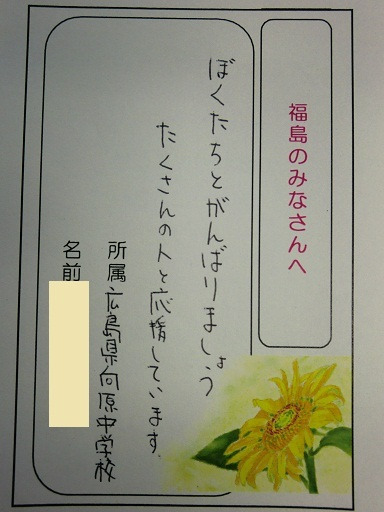 福島のみなさんへ
ぼくたちとがんばりましょう
たくさんの人と応援しています.
所属 広島県向原中学校
名前